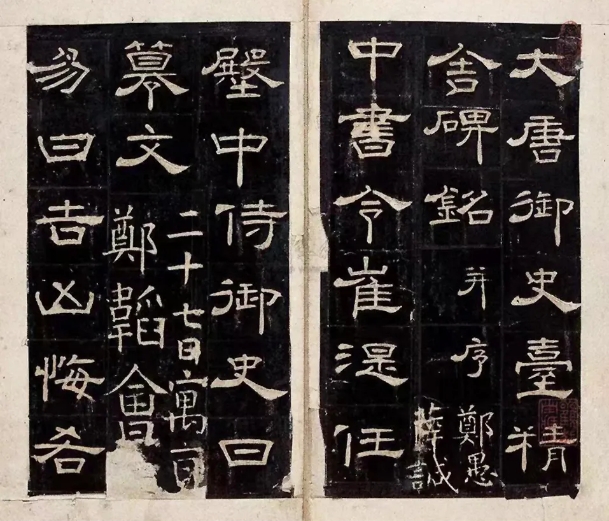 大唐御史臺精
舍碑銘并序
鄭愚
薛誠
中書令崔湜任
殿中侍御史日
纂文
二十七日寓
鄭韜
易曰吉凶悔吝